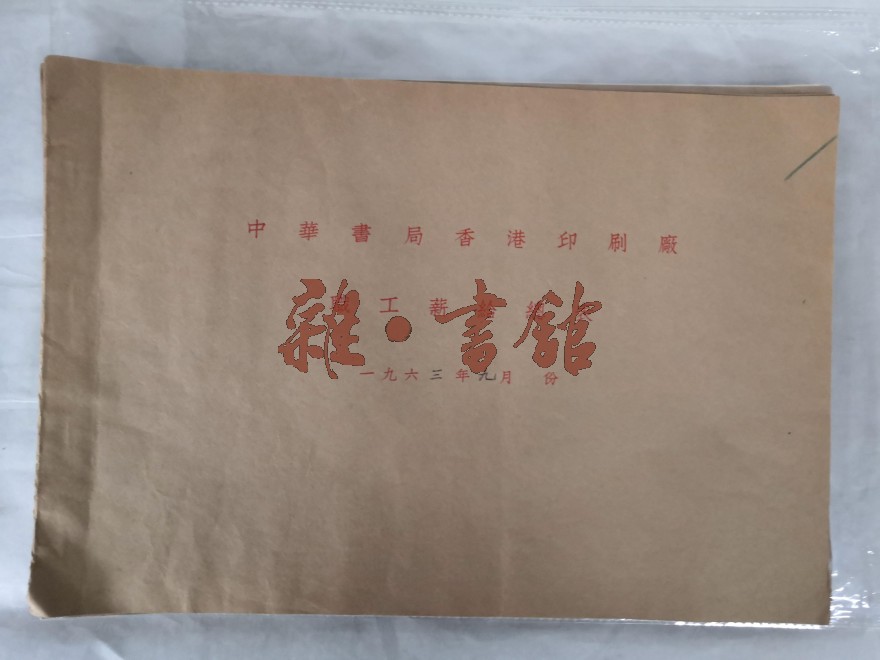 中華書局香港印刷廠
職工薪給總表
雜·書館
一九六三年九月 份